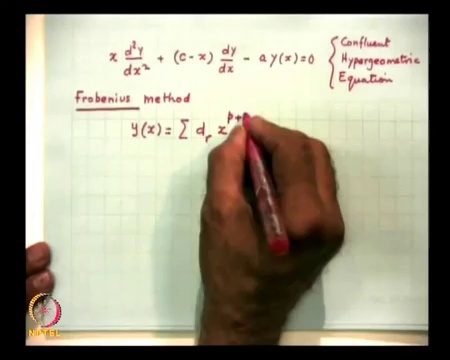 x d²y/dx² + (c-x) dy/dx - a y(x)=0 { Confluent
Hypergeometric
Equation
Frobenius method
y(x)= Σ d_r x^{p+
NPTEL